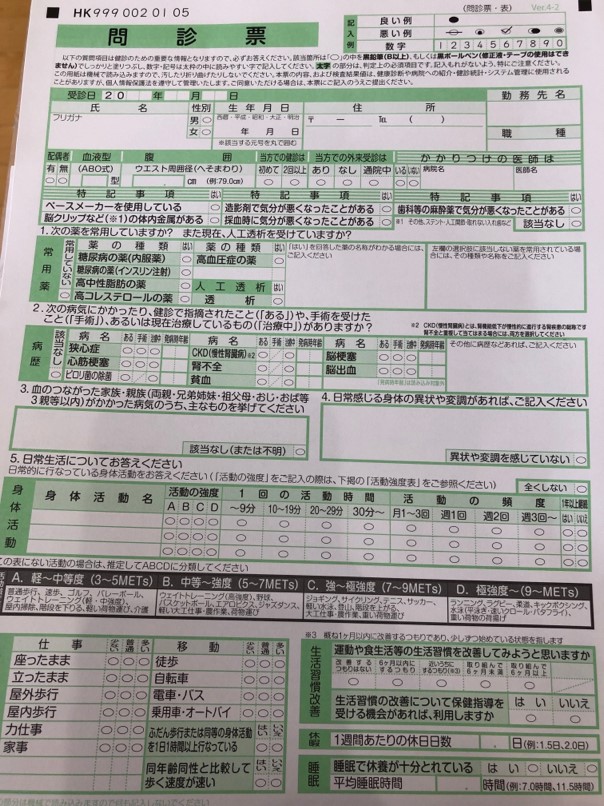 HK999 002 01 05
(問診票・表) Ver.4-2
問診票
記入例
良い例
悪い例
数字 1 2 3 4 5 6 7 8 9 0
以下の質問項目は健診のための重要な情報となりますので、必ずお答えください。該当箇所は「○」の中を黒鉛筆(B以上)、もしくは黒ボールペン(修正液・テープの使用はできません)でしっかりと塗りつぶし、数字・記号は太枠の中に読みやすい字で記入してください。
受診日 20 年 月 日
勤務先名
氏名 性別 生年月日 住所
フリガナ
男 女
西暦・平成・昭和・大正・明治
年 月 日
※該当する元号を丸で囲む
〒 ー ℡ ( )
職種
配偶者 血液型 腹囲 当方での健診は 当方での外来受診は かかりつけの医師は
有 無 (ABO式) 型 ウエスト周囲径(へそまわり) . cm (例:79.0cm) 初めて 2回以上 あり なし 通院中 いる いない 病院名 医師名
特記事項 はい 特記事項 はい 特記事項 はい
ペースメーカーを使用している 造影剤で気分が悪くなったことがある 歯科等の麻酔薬で気分が悪くなったことがある
脳クリップなど(※1)の体内金属がある 採血時に気分が悪くなったことがある 該当なし
1. 次の薬を常用していますか? また現在、人工透析を受けていますか?
常用薬
常用していない
薬の種類 はい 薬の種類 はい
糖尿病の薬(内服薬) 高血圧症の薬
糖尿病の薬(インスリン注射)
高中性脂肪の薬 人工透析 はい
高コレステロールの薬 透析
「はい」を回答した薬の名称がわかる場合には、ご記入ください
左欄の選択肢に該当しない薬を常用されている場合には、その種類や名称をご記入ください
2. 次の病気にかかったり、健診で指摘されたこと(「ある」)や、手術を受けた
こと(「手術」)、あるいは現在治療しているもの(「治療中」)がありますか?
※2 CKD(慢性腎臓病)とは、腎機能低下が慢性的に進行する腎疾患の総称です
腎不全と重複して当てはまる場合は、両方を選択してください
病歴
該当なし
病名 ある 手術 治療中 発病時年齢 病名 ある 手術 治療中 発病時年齢 病名 ある 手術 治療中 発病時年齢
狭心症 CKD(慢性腎臓病)※2 脳梗塞
心筋梗塞 腎不全 脳出血
ピロリ菌の除菌 貧血
その他に病歴などあれば、ご記入ください
3. 血のつながった家族・親族(両親・兄弟姉妹・祖父母・おじ・おば等
3親等以内)がかかった病気のうち、主なものを挙げてください
該当なし(または不明)
4. 日常感じる身体の異状や変調があれば、ご記入ください
異状や変調を感じていない
5. 日常生活についてお答えください
日常的に行なっている身体活動をお答えください(「活動の強度」をご記入の際は、下掲の「活動強度表」をご参照ください)
全くしない
身体活動
身体活動名 活動の強度 1回の活動時間 活動の頻度 1年以上継続
A B C D ~9分 10~19分 20~29分 30分~ 月1~3回 週1回 週2回 週3回~ はい いいえ
この表にない活動の場合は、推定してABCDに分類してください
A. 軽~中等度 (3~5METs) B. 中等~強度 (5~7METs) C. 強~極強度 (7~9METs) D. 極強度~(9~METs)
普通歩行、速歩、ゴルフ、バレーボール、ウエイトトレーニング(軽・中強度)、屋内掃除、階段を下りる、軽い荷物運び、介護
ウエイトトレーニング(高強度)、野球、バスケットボール、エアロビクス、ジャズダンス、軽い大工仕事・農作業、荷物運び
ジョギング、サイクリング、テニス、サッカー、軽い水泳、登山、階段を上がる、大工仕事・農作業、重い荷物運び
ランニング、ラグビー、柔道、キックボクシング、水泳(平泳ぎ・速いクロール・バタフライ)、重い荷物の荷揚げ
仕事 少ない 普通 多い 移動 少ない 普通 多い
座ったまま 徒歩
立ったまま 自転車
屋外歩行 電車・バス
屋内歩行 乗用車・オートバイ
力仕事
家事
ふだん歩行または同等の身体活動
を1日1時間以上行なっている はい いいえ
同年齢同性と比較して
歩く速度が速い はい いいえ
※3 概ね1ヶ月以内に改善するつもりであり、少しずつ始めている状態を指します
生活習慣改善
運動や食生活等の生活習慣を改善してみようと思いますか
改善するつもりはない 6ヶ月以内にするつもり 近いうちにするつもり(※3) 取り組んで6ヶ月未満 取り組んで6ヶ月以上
生活習慣の改善について保健指導を
受ける機会があれば、利用しますか はい いいえ
休暇 1週間あたりの休日日数 . 日(例:1.5日、2.0日)
睡眠 睡眠で休養が十分とれている はい いいえ
平均睡眠時間 . 時間(例:7.0時間、11.5時間)